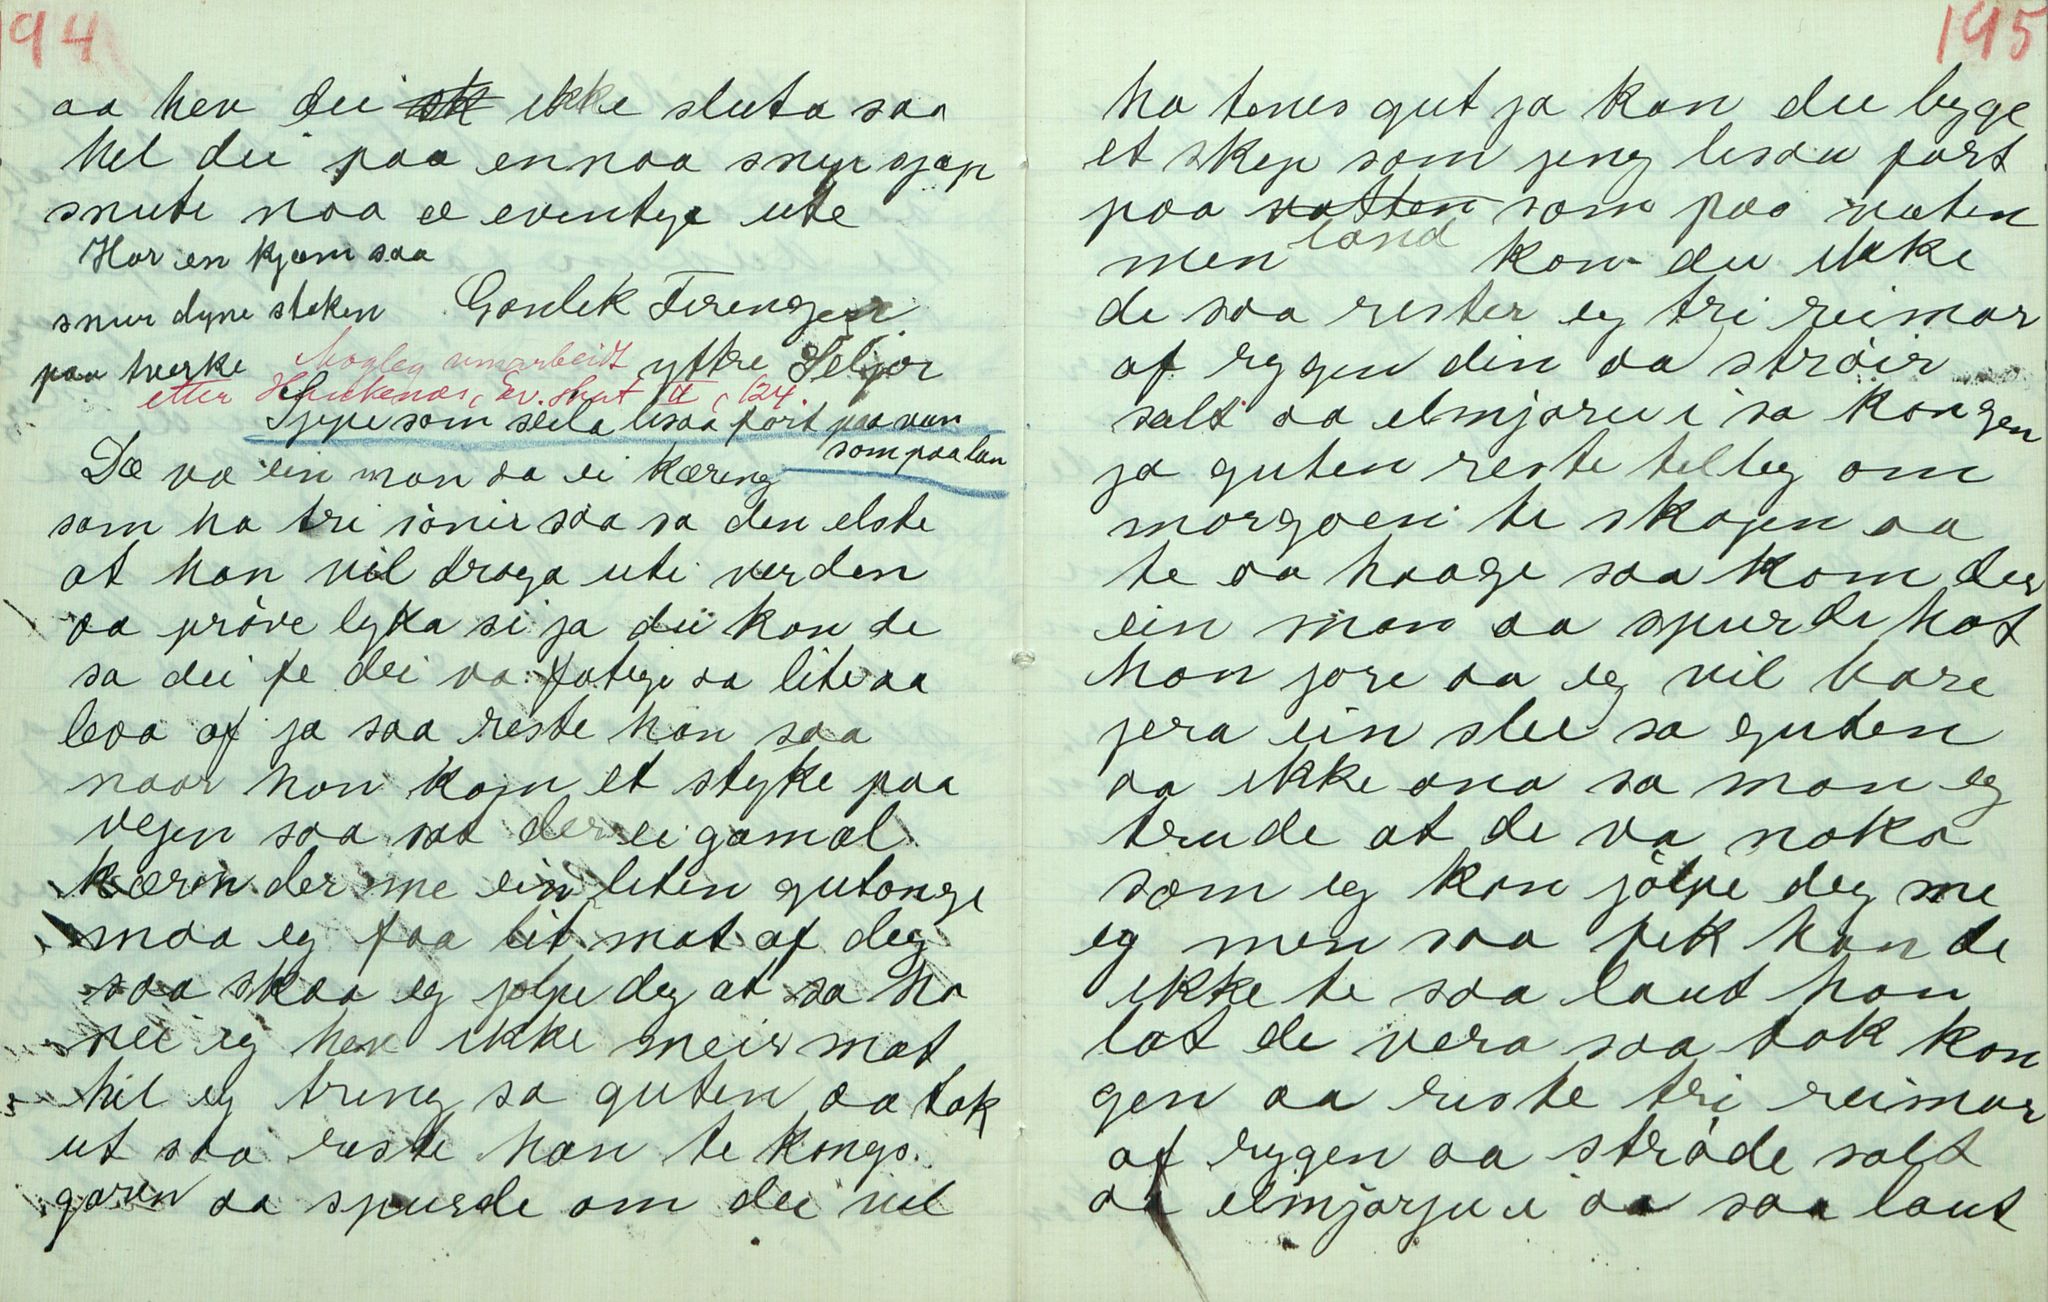 94
aa hev dei ikke sluta saa
hel dei paa ennaa snip snap
snute naa æ eventye ute
Har en kjem saa
snur dyne steken Gonlek Tirenger
paa tverke yttre Feljor
Mogleg umarbeidt
etter Haukenæs, Ev. skat II, 124.
Sjepe som skla lisaa fort paa van
som paa lan
Dæ va ein man aa ei kæring
som ha tri sönir saa sa den elste
at han vil draga uti verden
aa pröve lyka si ja du kan de
sa dei fe dei va fatige aa lite aa
leva af ja saa reste han saa
naar han kom et styke paa
vejen saa sat der ei gamal
kærin der me ein liten gutonge
maa eg faa lit mat af deg
saa skaa eg jolpe deg at sa ho
nei eg hev ikke meir mat
hil eg treng sa guten aa tok
ut saa reste han te kongs.
garen aa spurde om dei vil
195
ha tenes gut ja kan du byge
et skep som jeng lisaa fort
paa vatten som paa vaten
land
men kan du ikke
de saa rester eg tri reimar
af rygen din aa ströir
salt aa elmjoru i sa kongen
ja guten reste telleg om
morgoen te skogen aa
te aa hooge saa kom der
ein man aa spurde hot
han jore aa eg vil bare
jera ein slee sa guten
aa ikke ana sa man eg
trude at de va noka
som eg kan jölpe deg me
eg men saa fek han de
ikke te saa laut han
lat de vera saa tok kon
gen aa reste tri reimar
af rygen aa ströde salt
aa elmjorju i aa saa laut